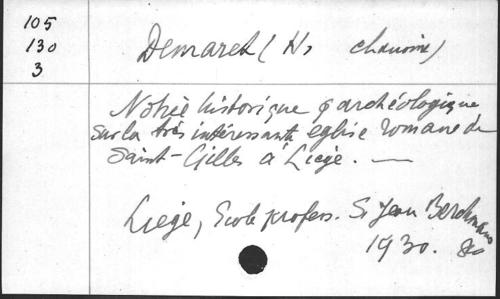 105
130
3
Demaret (H. chanoine)
Notice historique & archéologique
sur la très intéressante eglise romane de
Saint-Gilles à Liège. —
Liège, Ecole profess. St Jean Berchmans
1930. 8o